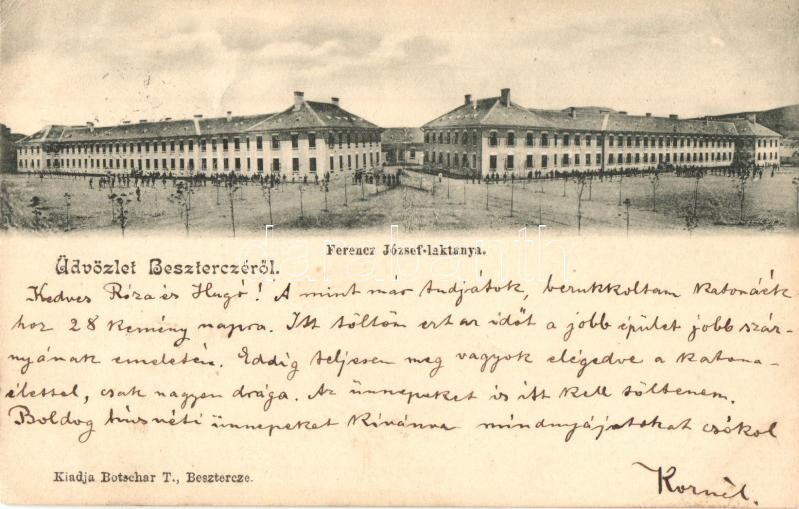 Ferencz József-laktanya.
Üdvözlet Beszterczéről.
Kedves Róza és Hugó! A mint már tudjátok, berukkoltam katonáék
hoz 28 kemény napra. Itt töltöm ezt az időt a jobb épület jobb szár-
nyának emeletén. Eddig teljesen meg vagyok elégedve a katona-
élettel, csak nagyon drága. Az ünnepeket is itt kell töltenem.
Boldog húsvéti ünnepeket kívánva mindnyájatokat csókol
Kornél.
Kiadja Botschar T., Besztercze.